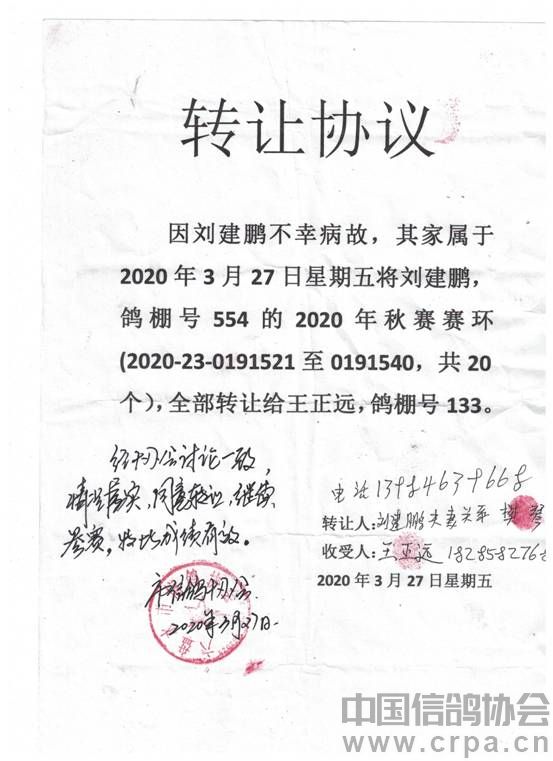 转让协议
因刘建鹏不幸病故，其家属于
2020 年 3 月 27 日星期五将刘建鹏，
鸽棚号 554 的 2020 年秋赛赛环
(2020-23-0191521 至 0191540，共 20
个），全部转让给王正远，鸽棚号 133。
经协会讨论一致，
情况属实，同意转让，继续
参赛，特此成绩有效。
市信鸽协会
2020年3月27日.
电话13984639668
转让人：刘建鹏夫妻关系
收受人：王正远 182858276
2020 年 3 月 27 日星期五
中国信鸽协会
www.crpa.cn